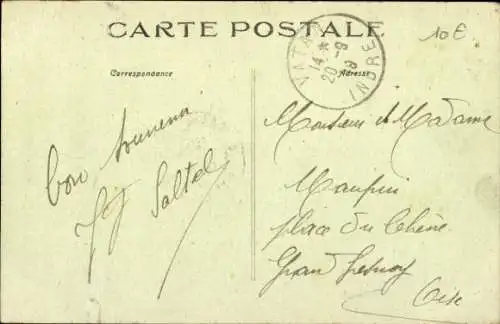 CARTE POSTALE
10 €
VATAN
14 *
20 - 9
INDRE
Correspondance
Adresse
Bon Souvenir
Saltel
Monsieur et Madame
Maupin
place du Chêne
Gran Fresnoy
Oise